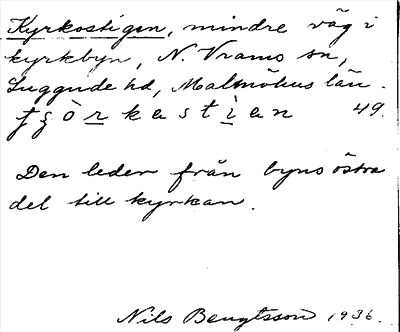 Kyrkostigen, mindre väg i
kyrkbyn, N. Vrams sn,
Luggude hd, Malmöhus län.
49.
Den leder från byns östra
del till kyrkan.
Nils Bengtsson 1936.